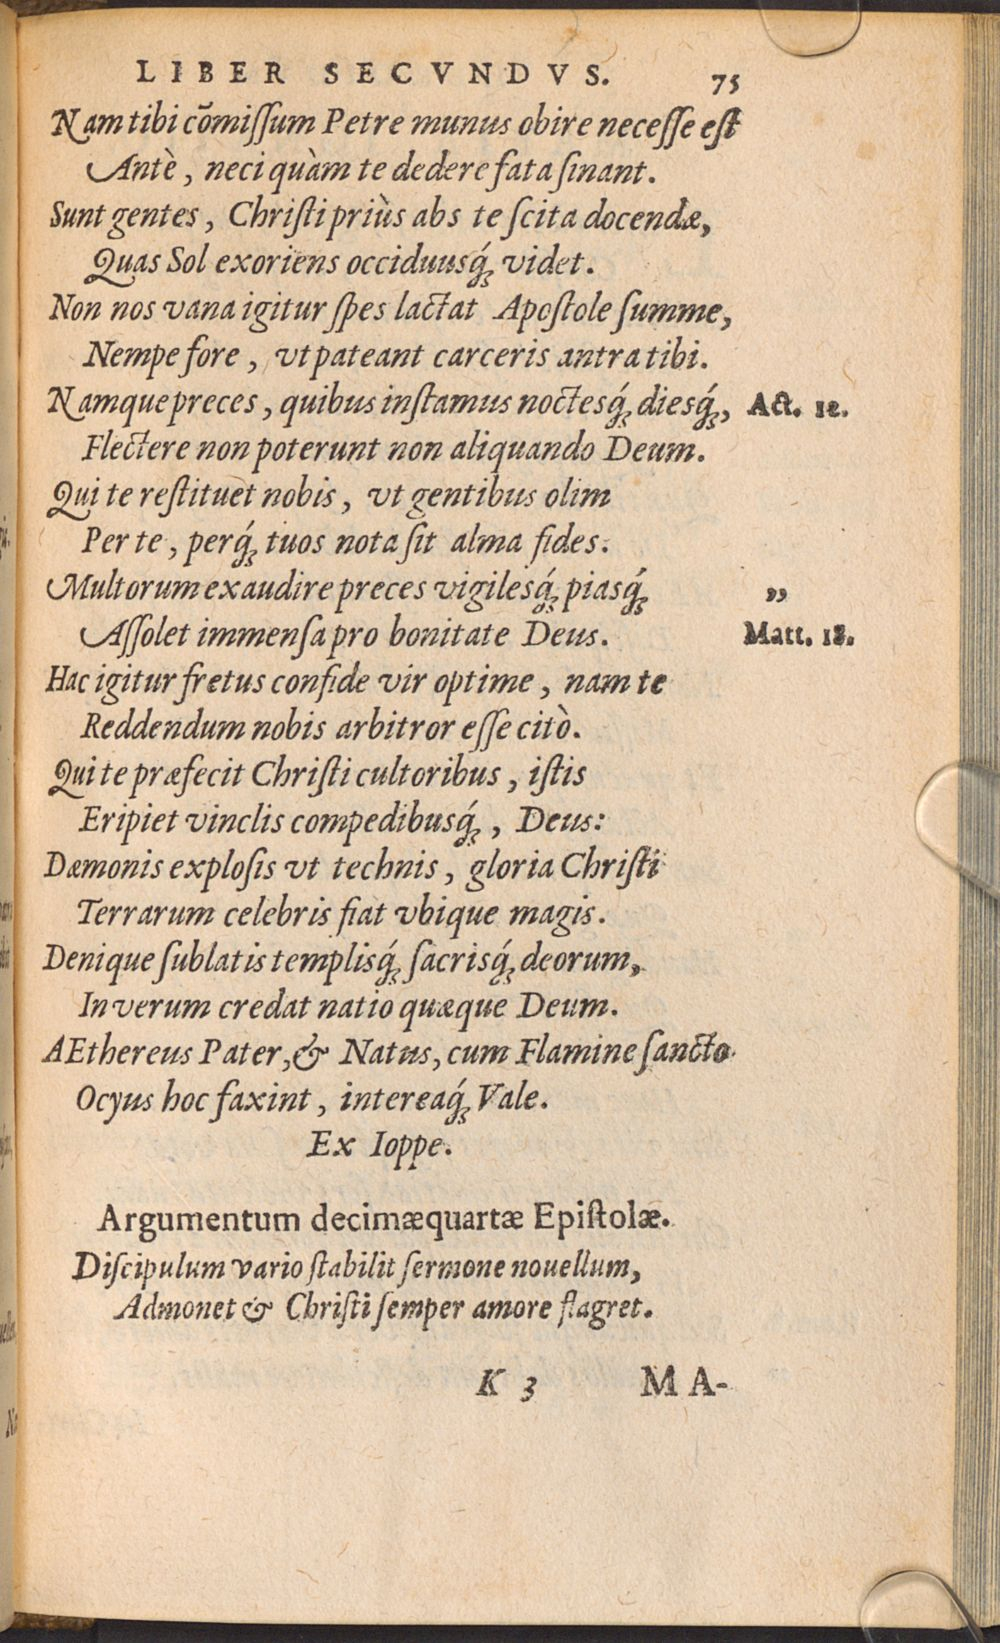 LIBER SECVNDVS. 75
Nam tibi cõmiſſum Petre munus obire neceſſe eſt
Antè, neci quàm te dedere fata ſinant.
Sunt gentes, Chriſti priùs abs te ſcita docendæ,
Quas Sol exoriens occiduusq́; videt.
Non nos vana igitur ſpes lactat Apoſtole ſumme,
Nempe fore, vt pateant carceris antra tibi.
Namque preces, quibus inſtamus noctesq́; diesq́;, Act. 12.
Flectere non poterunt non aliquando Deum.
Qui te reſtituet nobis, vt gentibus olim
Per te, perq́; tuos nota ſit alma fides.
Multorum exaudire preces vigilesq́; piasq́; „
Aſſolet immenſa pro bonitate Deus. Matt. 18.
Hac igitur fretus confide vir optime, nam te
Reddendum nobis arbitror eſſe citò.
Qui te præfecit Chriſti cultoribus, iſtis
Eripiet vinclis compedibusq́;, Deus:
Dæmonis exploſis vt technis, gloria Chriſti
Terrarum celebris fiat vbique magis.
Denique ſublatis templisq́; ſacrisq́; deorum,
In verum credat natio quæque Deum.
AEthereus Pater, & Natus, cum Flamine ſancto
Ocyus hoc faxint, intereaq́; Vale.
Ex Ioppe.
Argumentum decimæquartæ Epiſtolæ.
Diſcipulum vario ſtabilit ſermone nouellum,
Admonet & Chriſti ſemper amore flagret.
K 3 MA-